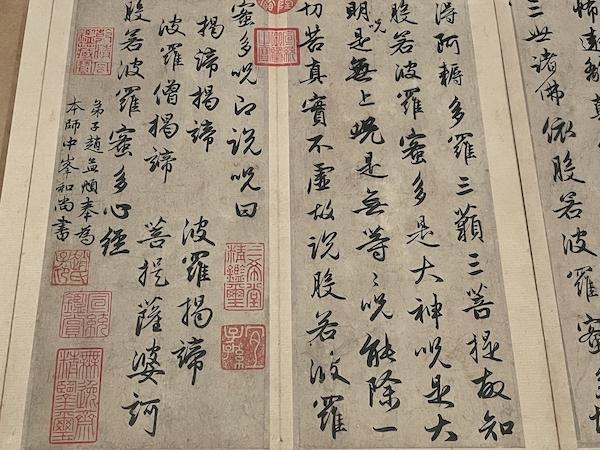 三世諸佛依般若波羅蜜多
得阿耨多羅三藐三菩提故知
般若波羅蜜多是大神呪是大
明呪是無上呪是無等〻呪能除一
切苦真實不虛故說般若波羅
蜜多呪即說呪曰
揭諦揭諦 波羅揭諦
波羅僧揭諦 菩提薩婆訶
般若波羅蜜多心經
弟子趙孟頫奉為
本師中峯和尚書
三希堂精鑑璽
宜子孫
趙氏子印
宣統鑑賞
無逸齋精鑒璽